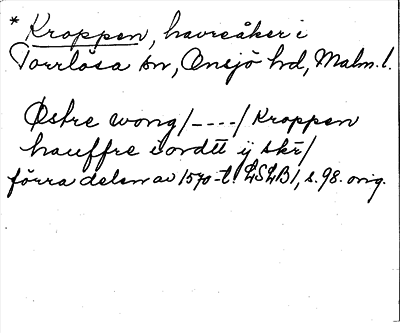 * Kroppen, havreåker i
Torrlösa sn, Onsjö hd, Malm. l.
Østre wong /----/ Kroppen
hauffre i ordtt ij skr/
förra delen av 1570-t. LSLB1, s. 98. orig.